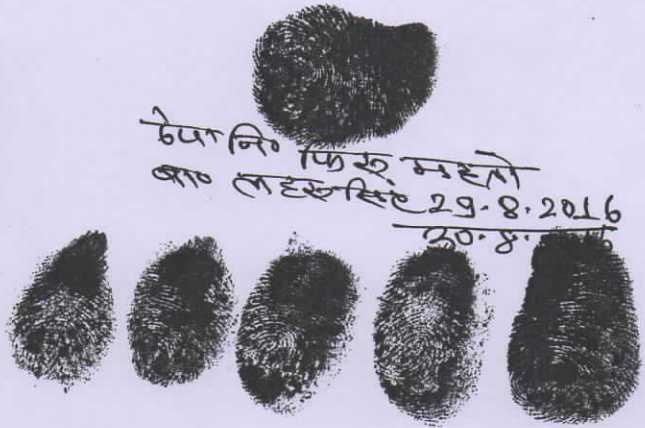 ठेपा नि० फिरू महतो
ब० लहरू सिंह 29.8.2016
30.8.